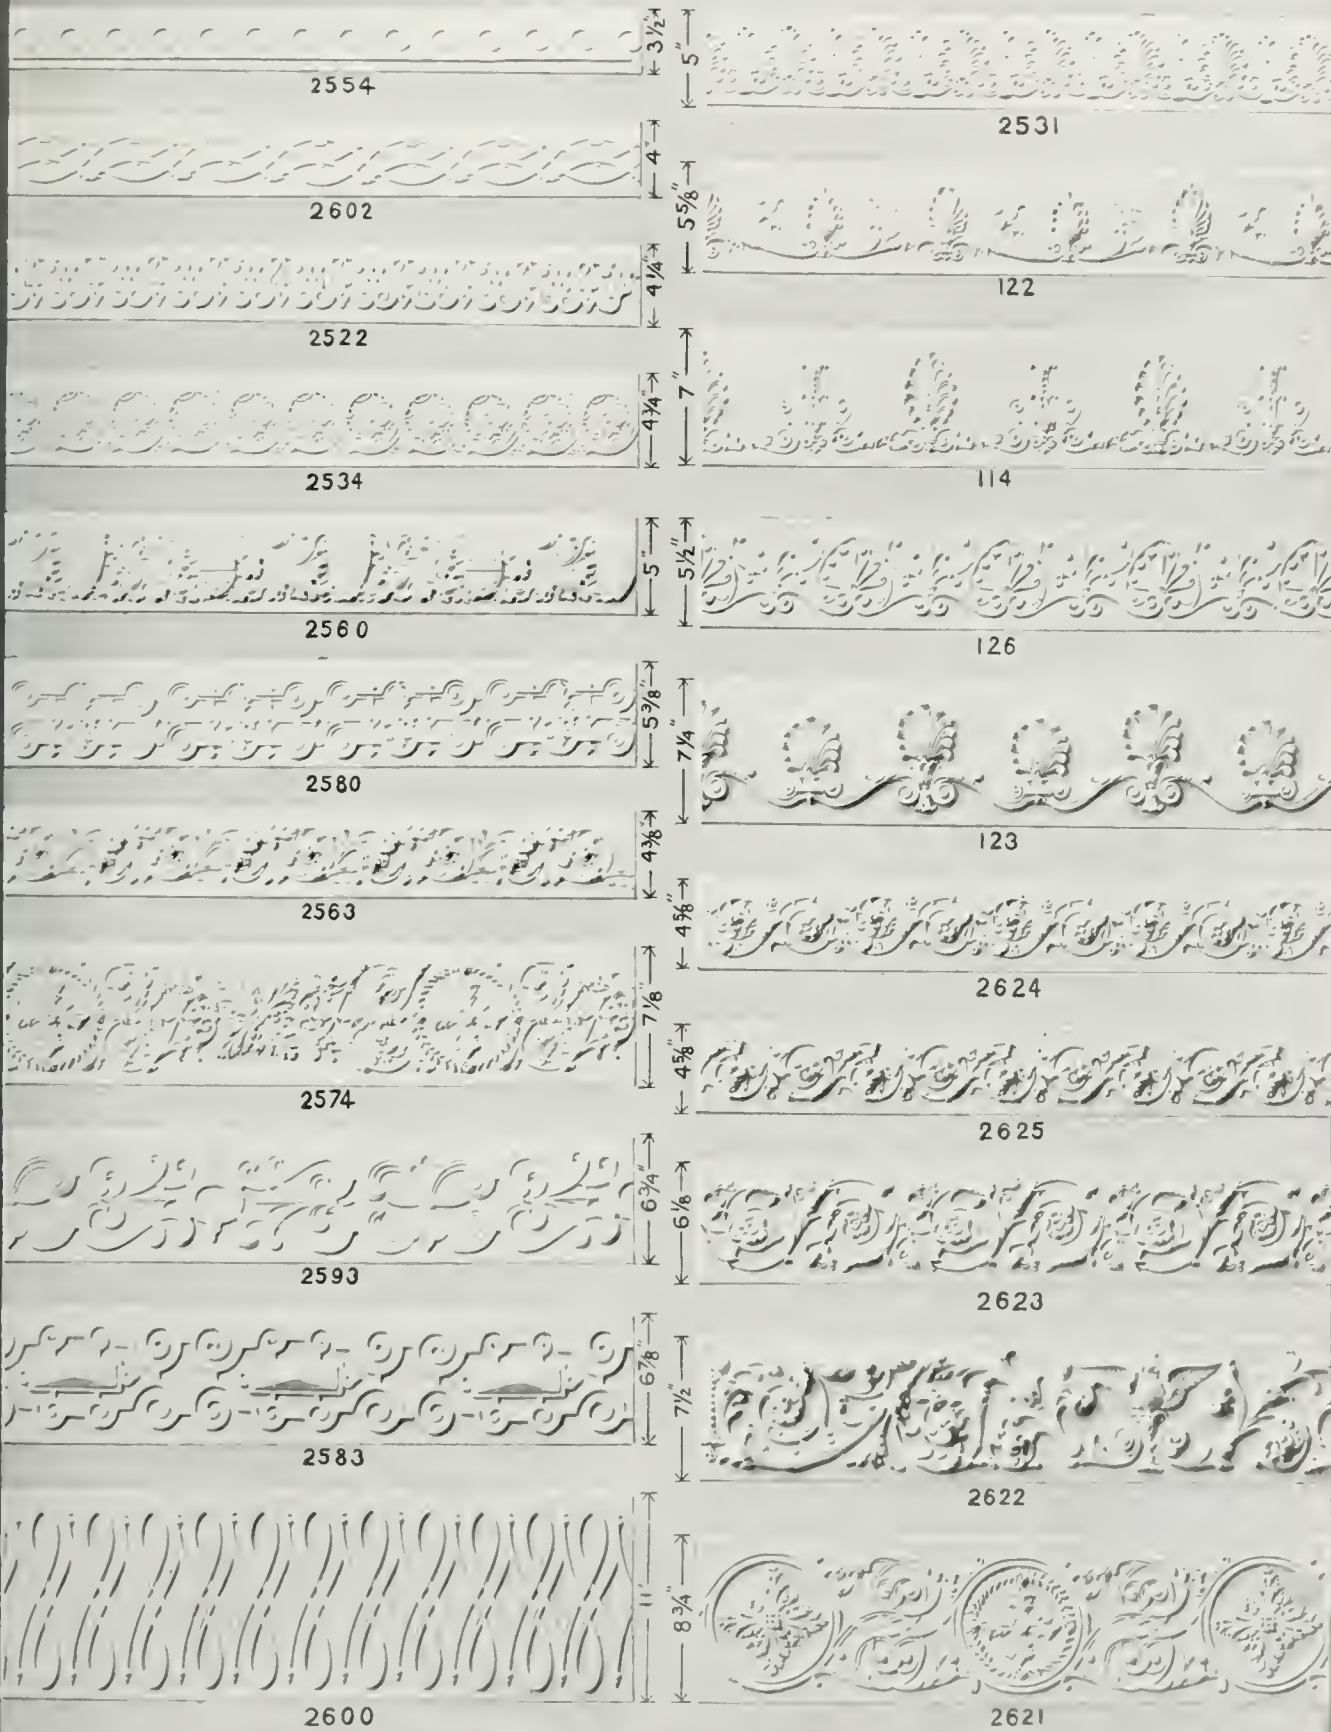 3½"
2554
4"
2602
4¼"
2522
4¾"
2534
5"
2560
5⅜"
2580
4⅜"
2563
7⅛"
2574
6¾"
2593
6⅞"
2583
11"
2600
5"
2531
5⅝"
122
7"
114
5½"
126
7¼"
123
4⅝"
2624
4⅝"
2625
6⅛"
2623
7½"
2622
8¾"
2621